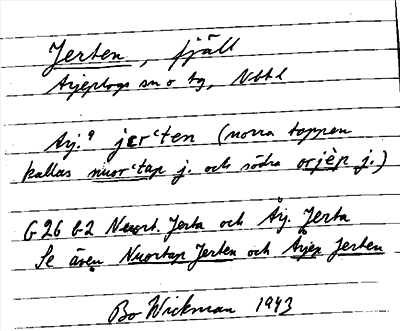 Jerten, fjäll
Arjeplogs sn o tg, Nbtl
Arj.a jerʿten (norra toppen
kallas nuorʿtap j. och södra orjèp j.)
G26 b2 Nuort. Jerta och Årj. Jerta
Se även Nuortap Jerten och Årjep Jerten
Bo Wickman 1943